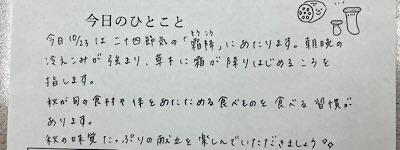 今日のひとこと
そうこう
今日10/23は二十四節気の「霜降」にあたります。朝晩の
冷えこみが強まり、草木に霜が降りはじめるころを
指します。
秋が旬の食材や体をあたためる食べものを食べる習慣が
あります。
秋の味覚たっぷりの献立を楽しんでいただきましょう。